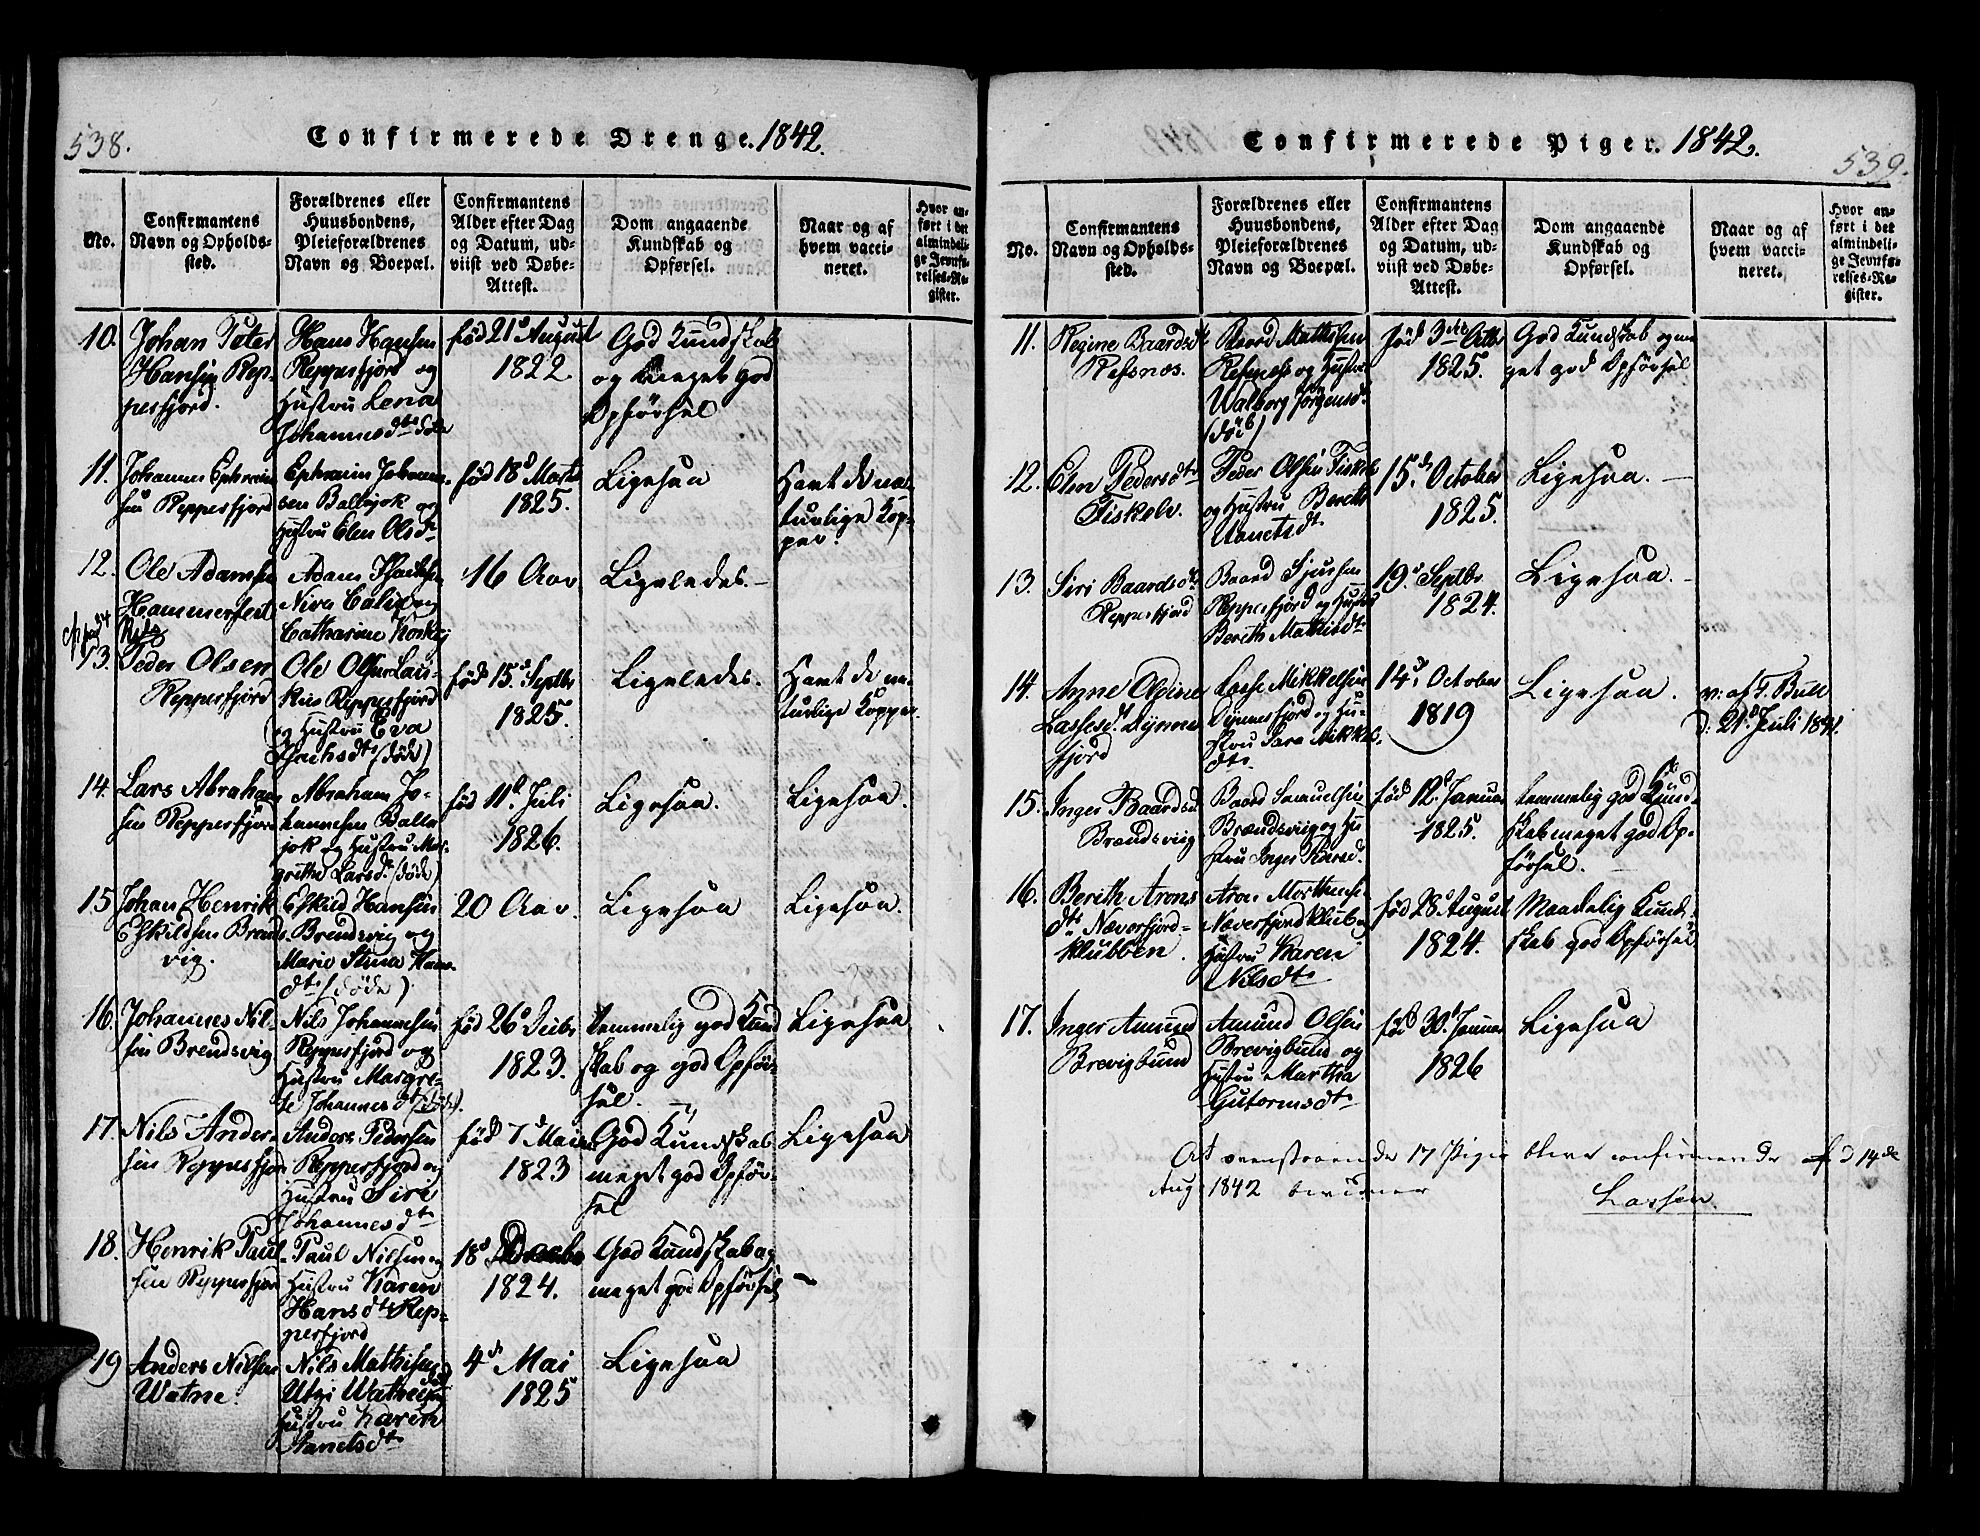 538.
Confirmerede Drenge. 1842.
No.
Confirmantens
Navn og Opholds-
sted.
Forældrenes eller
Huusbondens,
Pleieforældrenes
Navn og Boepæl.
Confirmantens
Alder efter Dag
og Datum, ud-
viist ved Døbe-
Attest.
Dom angaaende
Kundskab og
Opførsel.
Naar og af
hvem vacci-
neret.
Hvor an-
ført i det
almindeli-
ge Jevnfø-
relses-Re-
gister.
10.
Johan Peter
Hansen Rep-
perfjord.
Hans Hansen
Repperfjord og
Hustru Lena
Johannesdtr død
fød 21d August
1822.
God Kundskab
og meget god
Opførsel
11.
Johannes Ephraim-
sen Repperfjord
Ephraim Johanne-
sen Ballijok og
Hustru Elen Olsdtr
fød 18d Marts
1825.
Ligesaa
Havt de na-
turlige Kop-
per.
12.
Ole Adamsen
Hammerfest
Adam Isachsen
Niva Calix og
Catharine
16 Aar
Ligeledes.
13.
Peder Olsen
Repperfjord
Ole Olsen Lais-
Repperfjord
og Hustru Eva
Isachsdtr (død)
fød 15d Septbr
1825.
Ligeledes.
Havt de na-
turlige Kopper.
14.
Lars Abraham-
sen Repperfjord
Abraham Jo-
hannesen Balli-
jok og Hustru Mar-
grethe Larsd. (død)
fød 11d Juli
1826.
Ligesaa.
Ligesaa.
15
Johan Henrik
Eskildsen Brends-
vig.
Eskild Hansen
Brendsvig og
Marie Stina Hans-
dtr (døde)
20 Aar.
Ligesaa
Ligesaa.
16.
Johannes Nil-
sen Brendsvig
Nils Johannesen
Repperfjord og
Hustru Margre-
te Johannesd (død).
fød 26d Decbr
1823.
Temmelig god Kund
skab og god Opfør-
sel.
Ligesaa
17.
Nils Ander-
sen Repperfjord
Anders Pedersen
Repperfjord og
Hustru Siri
Johannesdtr
fød 7d Mai
1823
God Kundskab
meget god Opfør-
sel
Ligesaa
18.
Henrik Paul-
sen Repperfjord
Paul Nilsen og
Hustru Karen
Hansdtr Rep-
perfjord
18d
1824.
God Kundskab og
meget god Opførsel
19
Anders Nilsen
Watne.
Nils Mathisen
Hustru Karen
4d Mai
1825
Ligesaa
Confirmerede Piger. 1842.
539.
No.
Confirmantens
Navn og Opholds-
sted.
Forældrenes eller
Huusbondens,
Pleieforældrenes
Navn og Boepæl.
Confirmantens
Alder efter Dag
og Datum, ud-
viist ved Døbe-
Attest.
Dom angaaende
Kundskab og
Opførsel.
Naar og af
hvem vacci-
neret.
Hvor an-
ført i det
almindeli-
ge Jevnfø-
relses-Re-
gister.
11.
Regine Baardsd
Refsnæs.
Baard Mathisen
Refsnæs og Hustru
Walborg Jørgensd.
(død)
fød 3die Octbr
1825.
God Kundskab og me
get god Opførsel
12.
Elen Pedersdtr
Fiskelv.
Peder Olsen Fiskelv
og Hustru Bereth
15d October
1825.
Ligesaa.
13.
Siri Baardsdtr
Repperfjord
Baard Sjursen
Repperfjord og Hustru
Bereth Mathisdtr
19d Septbr
1824.
Ligesaa.
14.
Anne Olvine
Lassesd. Dynne
fjord
Lasse Mikkelsen
Dynnesfjord og Hu-
stru Sara Mikkels-
dtr
14d October
1819
Ligesaa.
v. af F. Bull
d. 21d Juli 1841.
15.
Inger Baardsd
Brændsviig
Baard Samuelsen
Brændsviig og Hu
stru Inger
fød 12d Januar
1825.
Temmelig god Kund-
skab meget god Op-
førsel.
16.
Berith Arons
dtr Næverfjord-
klubben.
Aron Morthensen
Næverfjordklub og
Hustru Karen
Nilsdtr
fød 28d August
1824.
Maadelig Kund-
skab god Opførsel
17.
Inger Amund
Brevigbund
Amund Olsen
Brevigbund og
Hustru Martha
Gutormsdtr
fød 30d Januar
1826
Ligesaa
At ovenstaaende 17 Piger bleve confirmerede d 14de
Aug 1842 bevidner
Lassen.